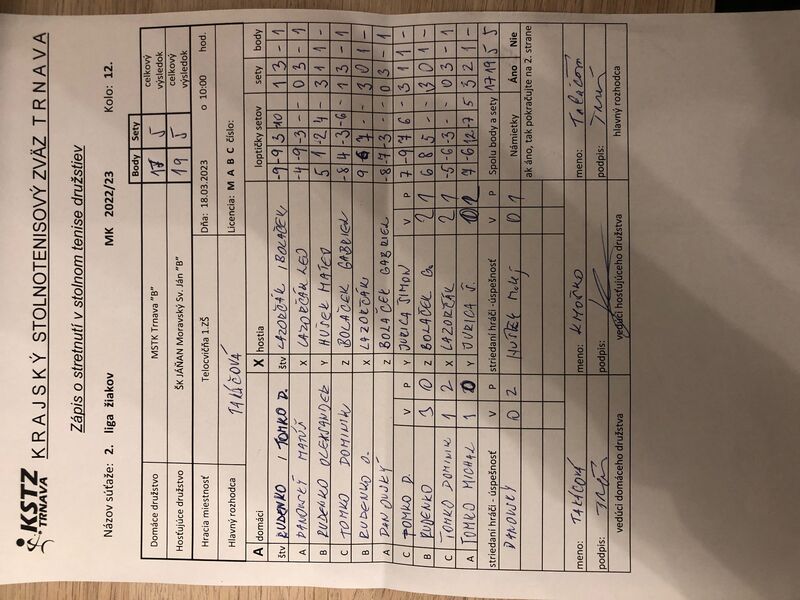 KSTZ
TRNAVA
KRAJSKÝ STOLNOTENISOVÝ ZVÄZ TRNAVA
Zápis o stretnutí v stolnom tenise družstiev
Názov súťaže: 2. liga žiakov MK 2022/23 Kolo: 12.
Body Sety
Domáce družstvo MSTK Trnava "B" 17 5 celkový výsledok
Hosťujúce družstvo ŠK JÁŇAN Moravský Sv. Ján "B" 19 5 celkový výsledok
Hracia miestnosť Telocvičňa 1.ZŠ Dňa: 18.03.2023 o 10:00 hod.
Hlavný rozhodca Licencia: M A B C číslo:
A domáci X hostia loptičky setov sety body
štv RUDENKO / TOMKO D. štv LAZORČÁK / BOLAČEK -9 -9 3 -10 1 3 -1
A DANOVSKÝ MATÚŠ X LAZORČÁK LEO -4 -9 -3 - 0 3 -1
B RUDENKO OLEKSANDER Y HUŠEK MATEJ 5 1 -2 4 - 3 1 1 -
C TOMKO DOMINIK Z BOLAČEK GABRIEL -8 4 -3 -6 - 1 3 -1
B RUDENKO O. X LAZORČÁK 3 0 1 -
A DANOVSKÝ Z BOLAČEK GABRIEL -8 -7 -3 - 0 3 -1
C TOMKO D. V P Y JURICA ŠIMON V P 7 -9 7 6 - 3 1 1 -
B RUDENKO 3 0 Z BOLAČEK G. 2 1 6 8 5 - - 3 0 1 -
C TOMKO DOMINIK 1 2 X LAZORČÁK 2 1 -5 -6 -3 - 0 3 -1
A TOMKO MICHAL 1 0 Y JURICA Š. 0 2 7 -6 12 -7 5 3 2 1 -
striedaní hráči -úspešnosť V P striedaní hráči -úspešnosť V P Spolu body a sety 17 19 5 5
DANOVSKÝ 0 2 0 1 Námietky Áno Nie
ak áno, tak pokračujte na 2. strane
meno: meno: KMOŤKO meno:
podpis: podpis: podpis:
vedúci domáceho družstva vedúci hosťujúceho družstva hlavný rozhodca